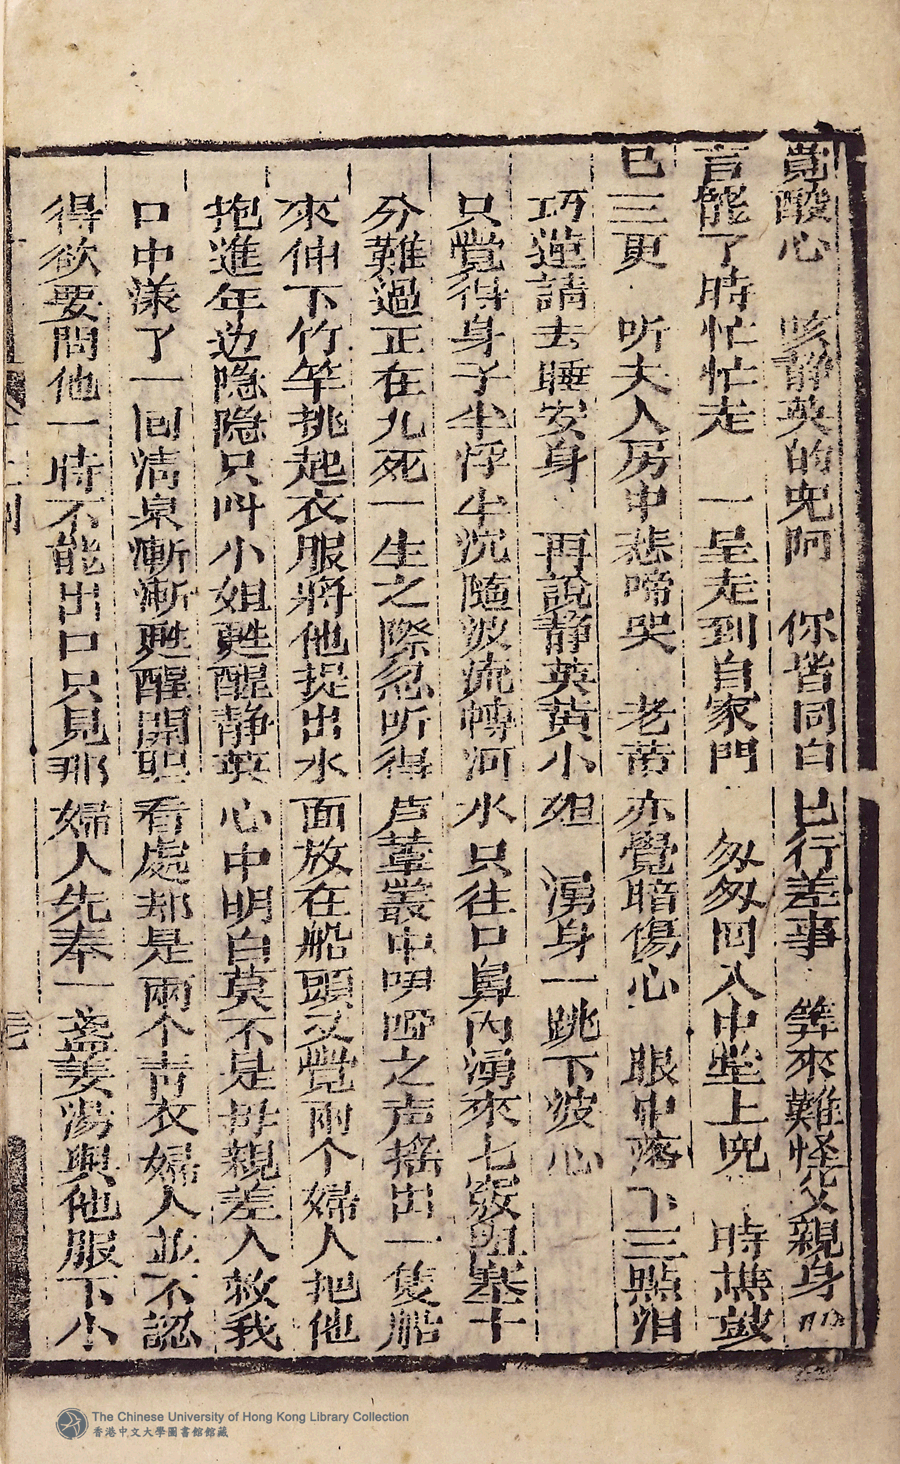 覺酸心　咳静英的兒阿　你皆同白已行差事　筭來難怪父親身
言能了時忙忙走　一呈走到自家門　匆匆回入中堂上兜　時譙鼓
已三更　听夫人房中悲啼哭　老苗亦覺暗傷心　眼中落下三點泪
巧蓮請去睡安身　再說静英黄小姐　湧身一跳下波心
只覺得身子半浮半沉隨波流轉河水只往口鼻内湧來七竅阻塞十
分難過正在九死一生之際忽听得芦葦叢中咿啞之声摇出一隻船
來伸下竹竿挑起衣服將他提出水面放在船頭又覺兩个婦人把他
抱進年边隐隐只呌小姐甦醒静英心中明白莫不是母親差人救我
口中漾了一回清泉漸漸甦醒開眼看處却是兩个青衣婦人並不認
得欲要問他一時不能出口只見那婦人先奉一盞姜湯與他服下小
The Chinese University of Hong Kong Library Collection
香港中文大學圖書館館藏